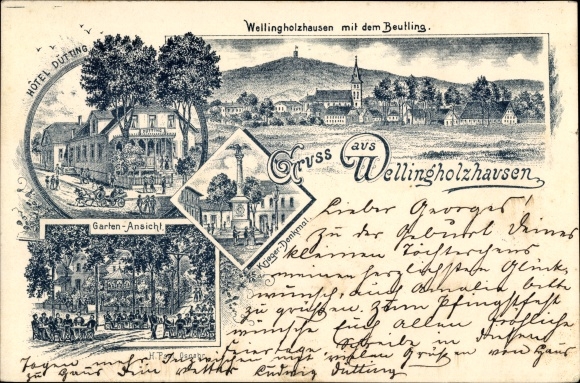 Wellingholzhausen mit dem Beutling.
HÔTEL DÜTTING
Gruss aus
Wellingholzhausen.
Krieger-Denkmal.
Garten-Ansicht.
Lieber Georges!
Zu der Geburt deines
kleinen Töchterchens
meinen herzlichsten Glück-
wunsch, auch Amalie bitte
zu grüßen. Zum Pfingstfest
wünsche Euch Allen fröhliche
Feiertage. Schreibe in
mehr mit vielen Grüßen von Haus
zu Haus Dein Vetter
Ludwig Dütting